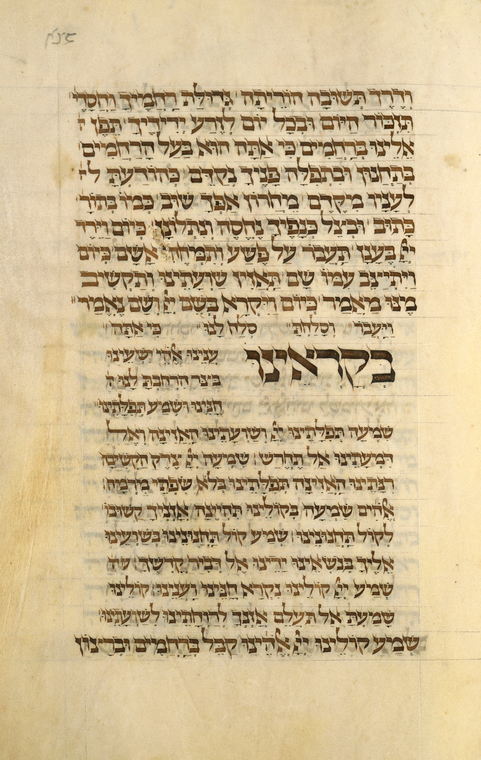 וְדֶרֶךְ תְּשׁוּבָה הוֹרֵיתָה גְּדוּלַת רַחֲמֶיךָ וַחֲסָדֶיךָ
תִּזְכּוֹר הַיּוֹם וּבְכָל יוֹם לְזֶרַע יְדִידֶיךָ תֵּפֶן
אֵלֵינוּ בְּרַחֲמִים כִּי אַתָּה הוּא בַּעַל הָרַחֲמִים
בְּתַחֲנוּן וּבִתְפִלָּה פָּנֶיךָ נְקַדֵּם כְּהוֹדַעְתָּ
לֶעָנָיו מִקֶּדֶם מֵחֲרוֹן אַפְּךָ שׁוּב כְּמוֹ בְּתוֹרָ
כָּתוּב וּבְצֵל כְּנָפֶיךָ נֶחֱסֶה וְנִתְלוֹנָן כְּיוֹם וַיֵּרֶד
יְיָ בֶּעָנָן תַּעֲבוֹר עַל פֶּשַׁע וְתִמְחֶה אָשָׁם כְּיוֹם
וַיִּתְיַצֵּב עִמּוֹ שָׁם תַּאֲזִין שַׁוְעָתֵינוּ וְתַקְשִׁיב
מֶנּוּ מַאֲמָר כְּיוֹם וַיִּקְרָא בְּשֵׁם יְיָ וְשָׁם נֶאֱמַר
וַיַּעֲבוֹר וְסָלַחְתָּ סְלַח לָנוּ כִּי אַתָּה
בְּקָרְאֵינוּ עֲנֵינוּ אֱלֹהֵי יְשׁוּעֵינוּ
בַּצַּר הִרְחַבְתָּ לָנוּ
חָנֵּינוּ וּשְׁמַע תְּפִלָּתֵינוּ
שִׁמְעָה תְפִלָּתֵינוּ יְיָ וְשַׁוְעָתֵינוּ הַאֲזִינָה וְאֶל
דִּמְעָתֵינוּ אַל תֶּחֱרַשׁ שִׁמְעָה יְיָ צֶדֶק הַקְשִׁיבָה
רִנָּתֵינוּ הַאֲזִינָה תְפִלָּתֵינוּ בְּלֹא שִׂפְתֵי מִרְמָה
אֱלֹהִים שִׁמְעָה בְּקוֹלֵינוּ תִּהְיֶינָה אָזְנֶיךָ קַשּׁוּבוֹ
לְקוֹל תַּחֲנוּנֵינוּ שְׁמַע קוֹל תַּחֲנוּנֵינוּ בְּשַׁוְעֵינוּ
אֵלֶיךָ בְּנָשְׂאֵינוּ יָדֵינוּ אֶל דְּבִיר קָדְשֶׁךָ
שְׁמַע יְיָ קוֹלֵינוּ נִקְרָא חָנֵּינוּ וַעֲנֵינוּ קוֹלֵינוּ
שָׁמַעְתָּ אַל תַּעְלֵם אָזְנְךָ לְרַוְחָתֵינוּ לְשַׁוְעָתֵינוּ
שְׁמַע קוֹלֵינוּ יְיָ אֱלֹהֵינוּ קַבֵּל בְּרַחֲמִים וּבְרָצוֹן